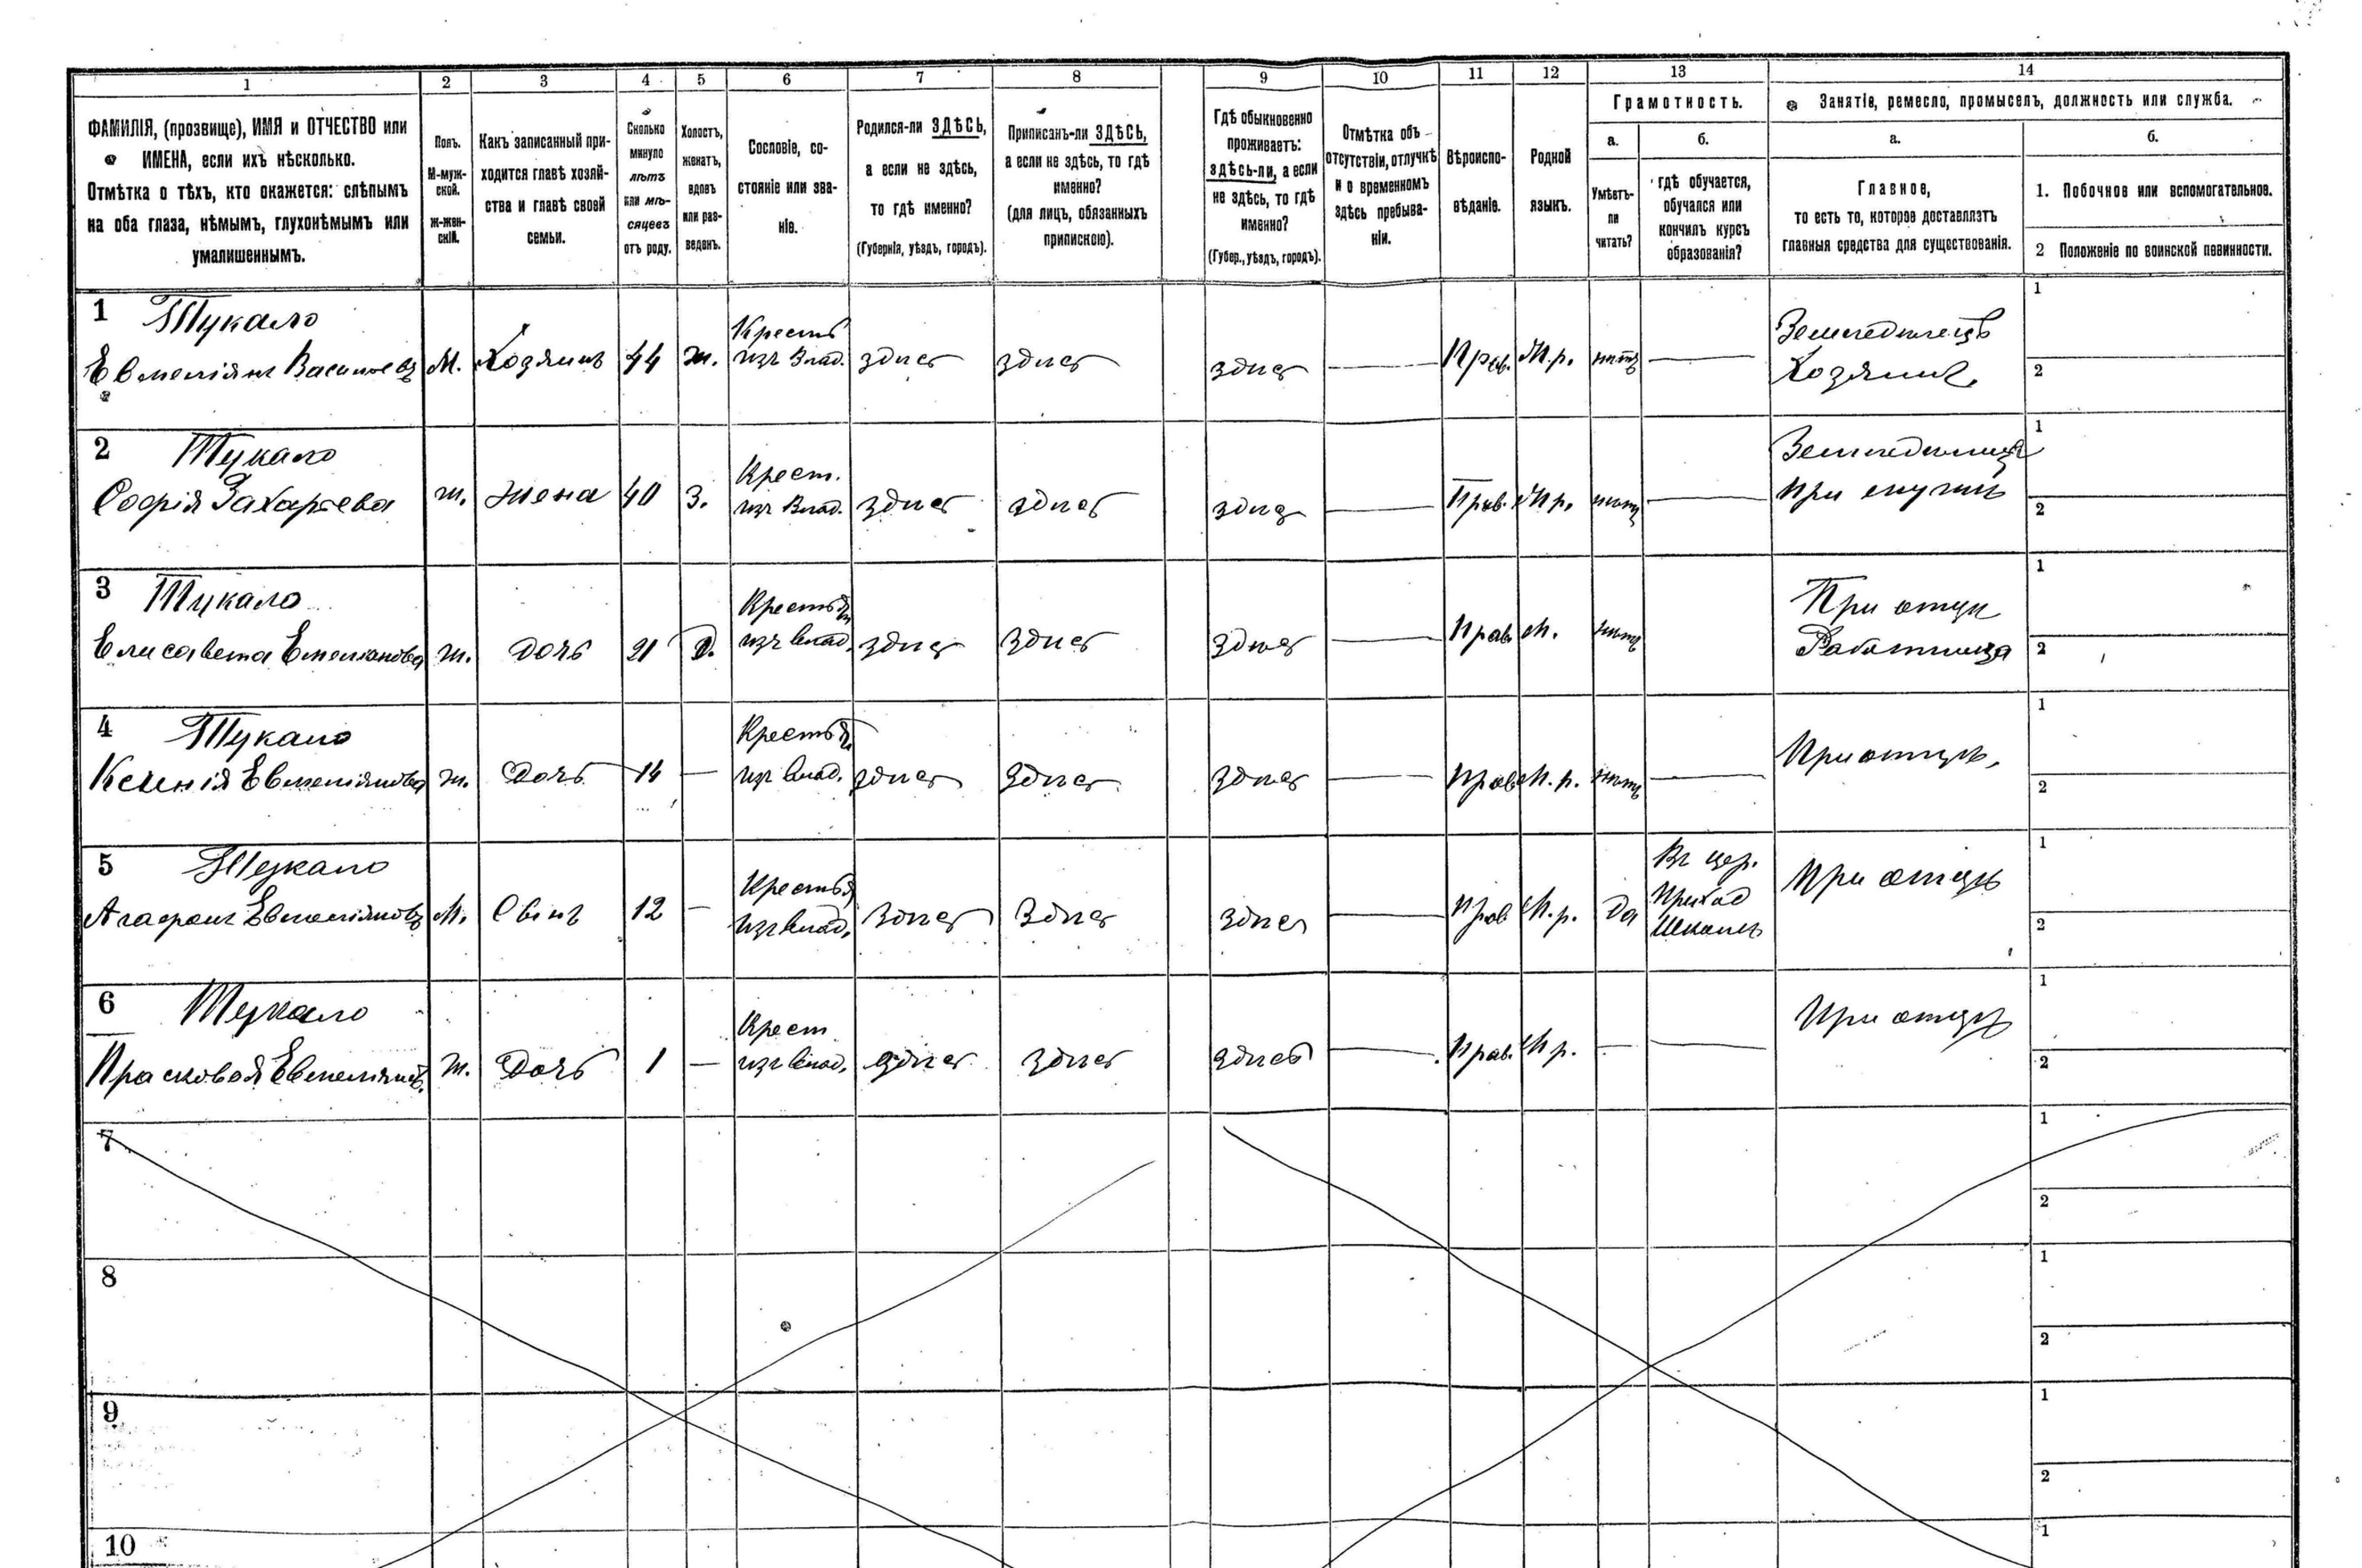 1 2 3 4 5 6 7 8 9 10 11 12 13 14
ФАМИЛІЯ, (прозвище), ИМЯ и ОТЧЕСТВО или
ИМЕНА, если ихъ нѣсколько.
Отмѣтка о тѣхъ, кто окажется: слѣпымъ
на оба глаза, нѣмымъ, глухонѣмымъ или
умалишеннымъ.
Полъ.
М-муж-
ской.
Ж-жен-
скій.
Какъ записанный при-
ходится главѣ хозяй-
ства и главѣ своей
семьи.
Сколько
минуло
лѣтъ
или мѣ-
сяцевъ
отъ роду.
Холостъ,
женатъ,
вдовъ
или раз-
веденъ.
Сословіе, со-
стояніе или зва-
ніе.
Родился-ли ЗДѢСЬ,
а если не здѣсь,
то гдѣ именно?
(Губернія, уѣздъ, городъ).
Приписанъ-ли ЗДѢСЬ,
а если не здѣсь, то гдѣ
именно?
(для лицъ, обязанныхъ
припискою).
Гдѣ обыкновенно
проживаетъ:
ЗДѢСЬ-ЛИ, а если
не здѣсь, то гдѣ
именно?
(Губер., уѣздъ, городъ).
Отмѣтка объ
отсутствіи, отлучкѣ
и о временномъ
здѣсь пребыва-
ніи.
Вѣроиспо-
вѣданіе.
Родной
языкъ.
Грамотность.
а.
Умѣетъ-
ли
читать?
б.
гдѣ обучается,
обучался или
кончилъ курсъ
образованія?
Занятіе, ремесло, промыселъ, должность или служба.
а.
Главное,
то есть то, которое доставляетъ
главныя средства для существованія.
б.
1. Побочное или вспомогательное.
2 Положеніе по воинской повинности.
1 Тукало Крестья Земледѣлецъ 1
Евмеліянъ Васильевъ М. Хозяинъ 44 ж. изъ Влад. здѣсь здѣсь здѣсь — Прав. М.р. нѣтъ — Хозяинъ. 2
2 Тукало Крест. 1
Софія Захарьева ж. жена 40 З. изъ Влад. здѣсь здѣсь здѣсь — Прав. М.р. нѣтъ — при мужѣ 2
3 Тукало Крестья При отцѣ 1
Елисавета Емельянова ж. дочь 21 Д. изъ влад. здѣсь здѣсь здѣсь — Прав. М. нѣтъ Работница 2
4 Тукало Крестья 1
Ксенія Евмеліянова ж. Дочь 14 — изъ влад. здѣсь здѣсь здѣсь — Прав М.р. нѣтъ — При отцѣ. 2
5 Тукало Крестья Въ цер. При отцѣ 1
Агафонъ Евмеліяновъ М. Сынъ 12 — изъ влад. здѣсь здѣсь здѣсь — Прав М.р. да Приход 2
Школѣ
6 Тукало Крест При отцѣ 1
Прасковья Евмеліянов. ж. Дочь 1 — изъ влад. здѣсь здѣсь здѣсь — Прав. М р. — — 2
7 1
2
8 1
2
9 1
2
10 1